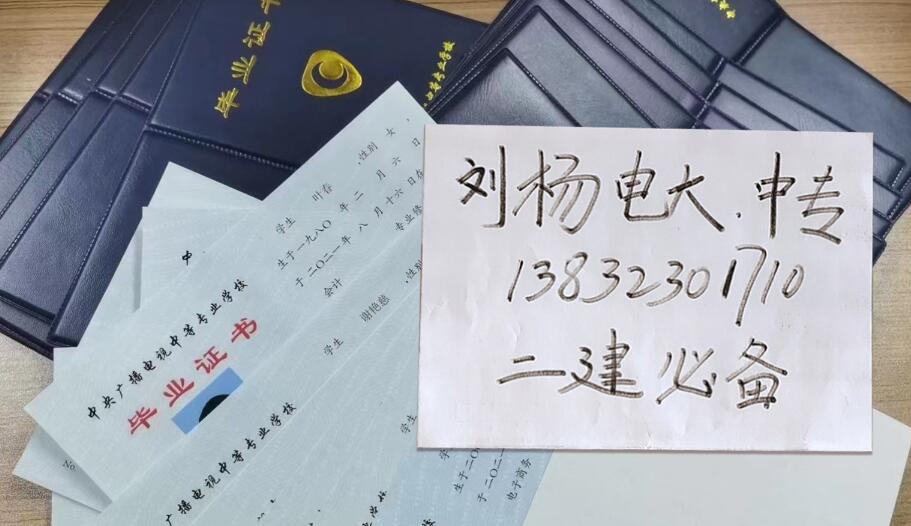 毕业证书
刘杨电大.中专
13832301710
二建必备
中央广播电视中等专业学校
毕业证书
学生 叶春 ,性别 女,
生于一九八〇年 二 月 六 日
于二〇二一年 八 月 十六 日在
会计 专业修
学生 谢艳慈 ,性别
广播电视中等专业学校
No
学生
生于二〇
于二〇二一
电子商务